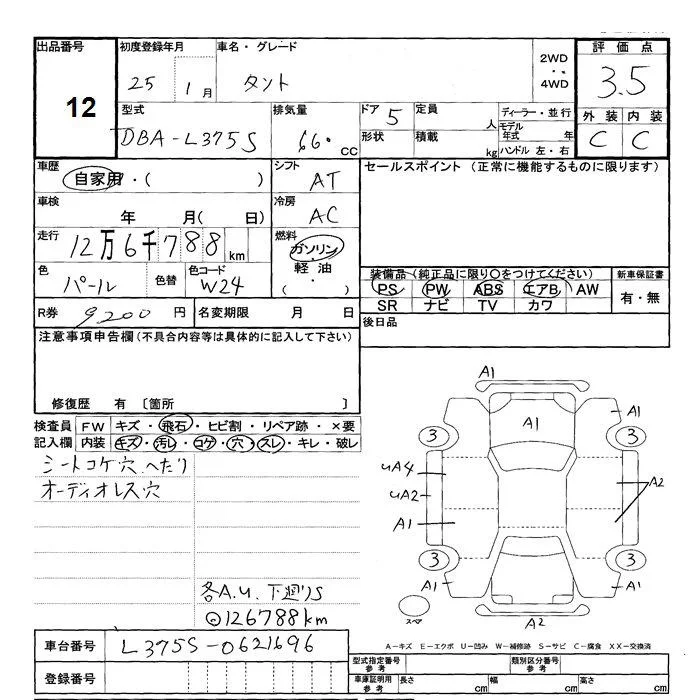 出品番号 初度登録年月 車名・グレード 評価点
12 25 1月 タント 2WD ・・ 4WD 3.5
外装 内装
C C
型式 排気量 ドア 定員 ディーラー・並行
DBA-L375S 66０ cc 5 人 モデル年式 年
形状 積載 kg ハンドル 左・右
車歴 シフト セールスポイント (正常に機能するものに限ります)
自家用・( ) AT
車検 冷房
年 月( 日) AC
走行 燃料
12万6千788km ガソリン・軽油・( )
装備品(純正品に限り○をつけてください) 新車保証書
色 色替 色コード PS PW ABS エアB AW 有・無
パール W24 SR ナビ TV カワ
R券 9200円 名変期限 月 日 後日品
注意事項申告欄(不具合内容等は具体的に記入して下さい)
修復歴 有 〔箇所 〕
検査員 FW キズ・飛石・ヒビ割・リペア跡・×要
記入欄 内装 キズ・汚レ・コゲ・穴・スレ・キレ・破レ
シートコゲ穴、へたり
オーディオレス穴
各A.U.下廻りS
◎126788km
A1
A1 A1
3 3
UA4
UA2 A2
A1
3 3
A1 A1
スペア A2
A-キズ E-エクボ U-凹み W-補修跡 S-サビ C-腐食 XX-交換済
車台番号 L375S-0621696
登録番号
型式指定番号 参考 類別区分番号 参考
車庫証明用 参考 長さ cm 幅 cm 高さ cm